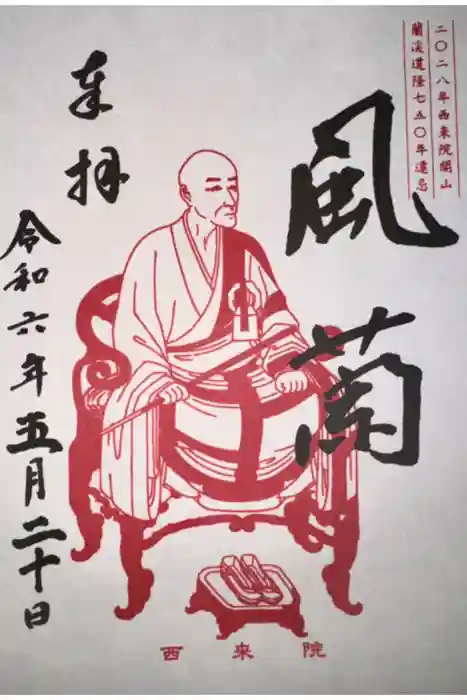 二〇二八年西来院開山
蘭渓道隆七五〇年遠忌
風蘭
奉拝
令和六年五月二十日
西来院